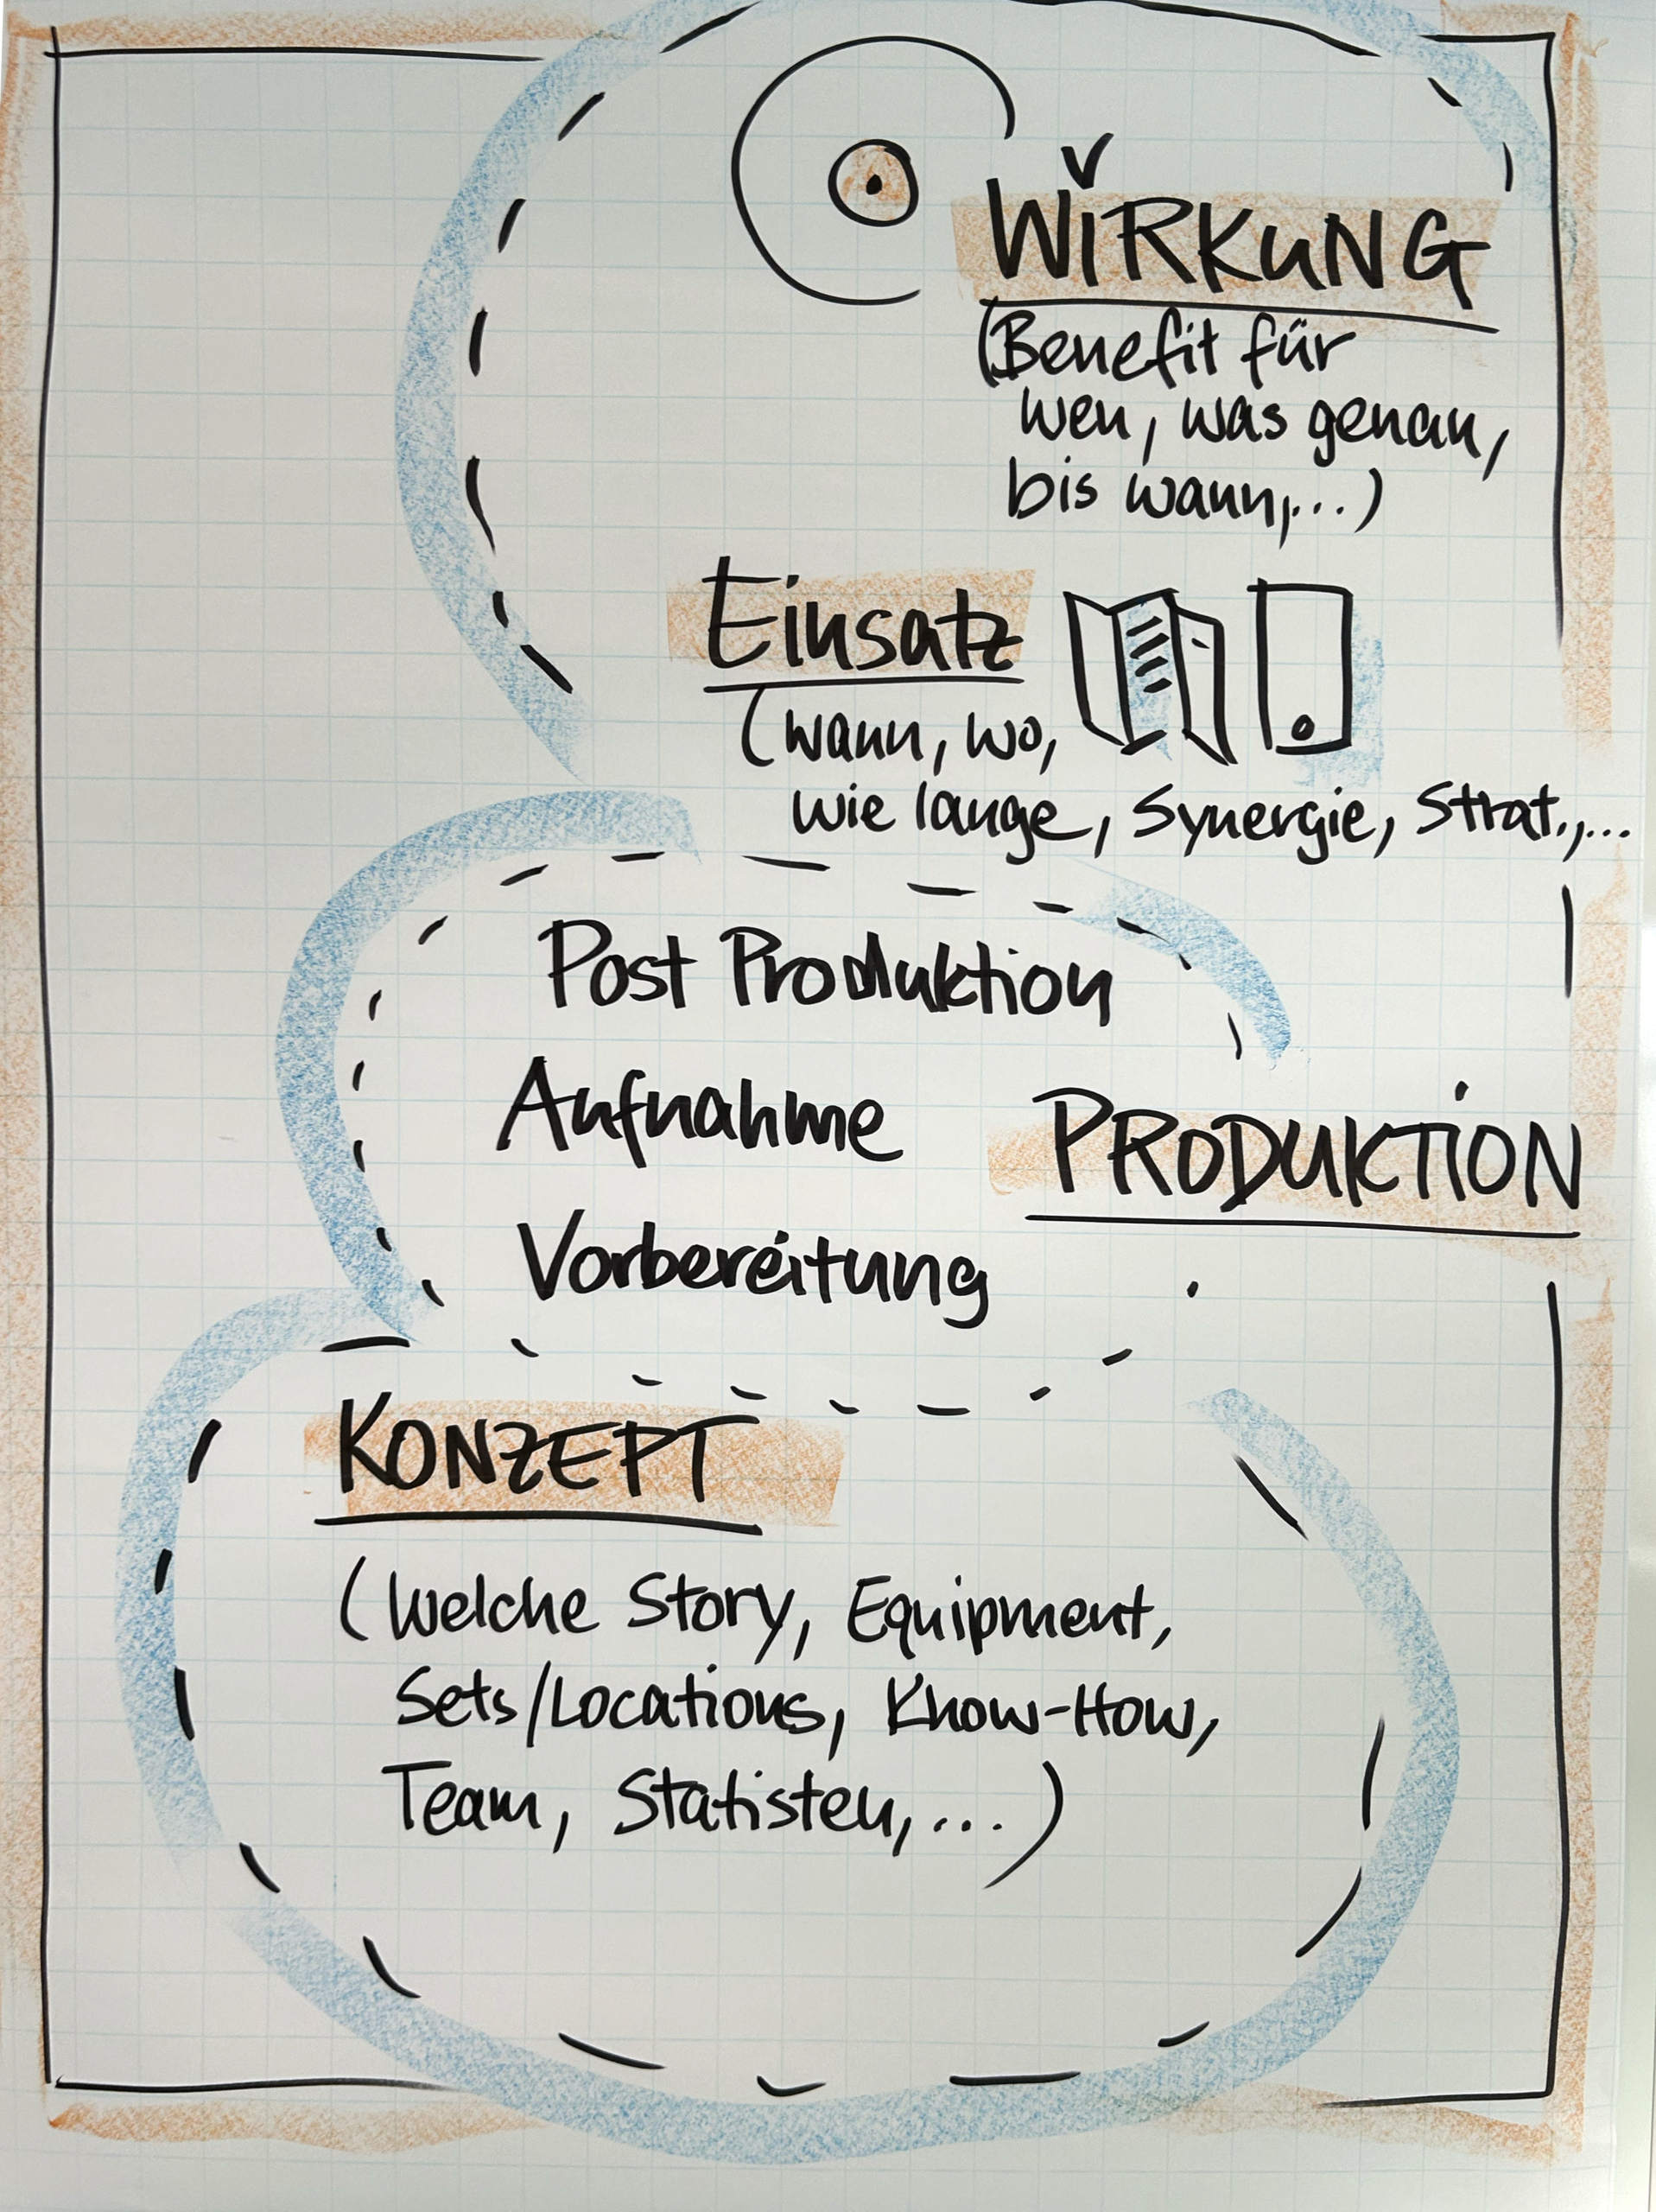 WIRKUNG
(Benefit für
wen, was genau,
bis wann,...)
Einsatz
(wann, wo,
wie lange, Synergie, Strat.,...
Post Produktion
Aufnahme
PRODUKTION
Vorbereitung
KONZEPT
(Welche Story, Equipment,
Sets/Locations, Know-How,
Team, Statisten,...)